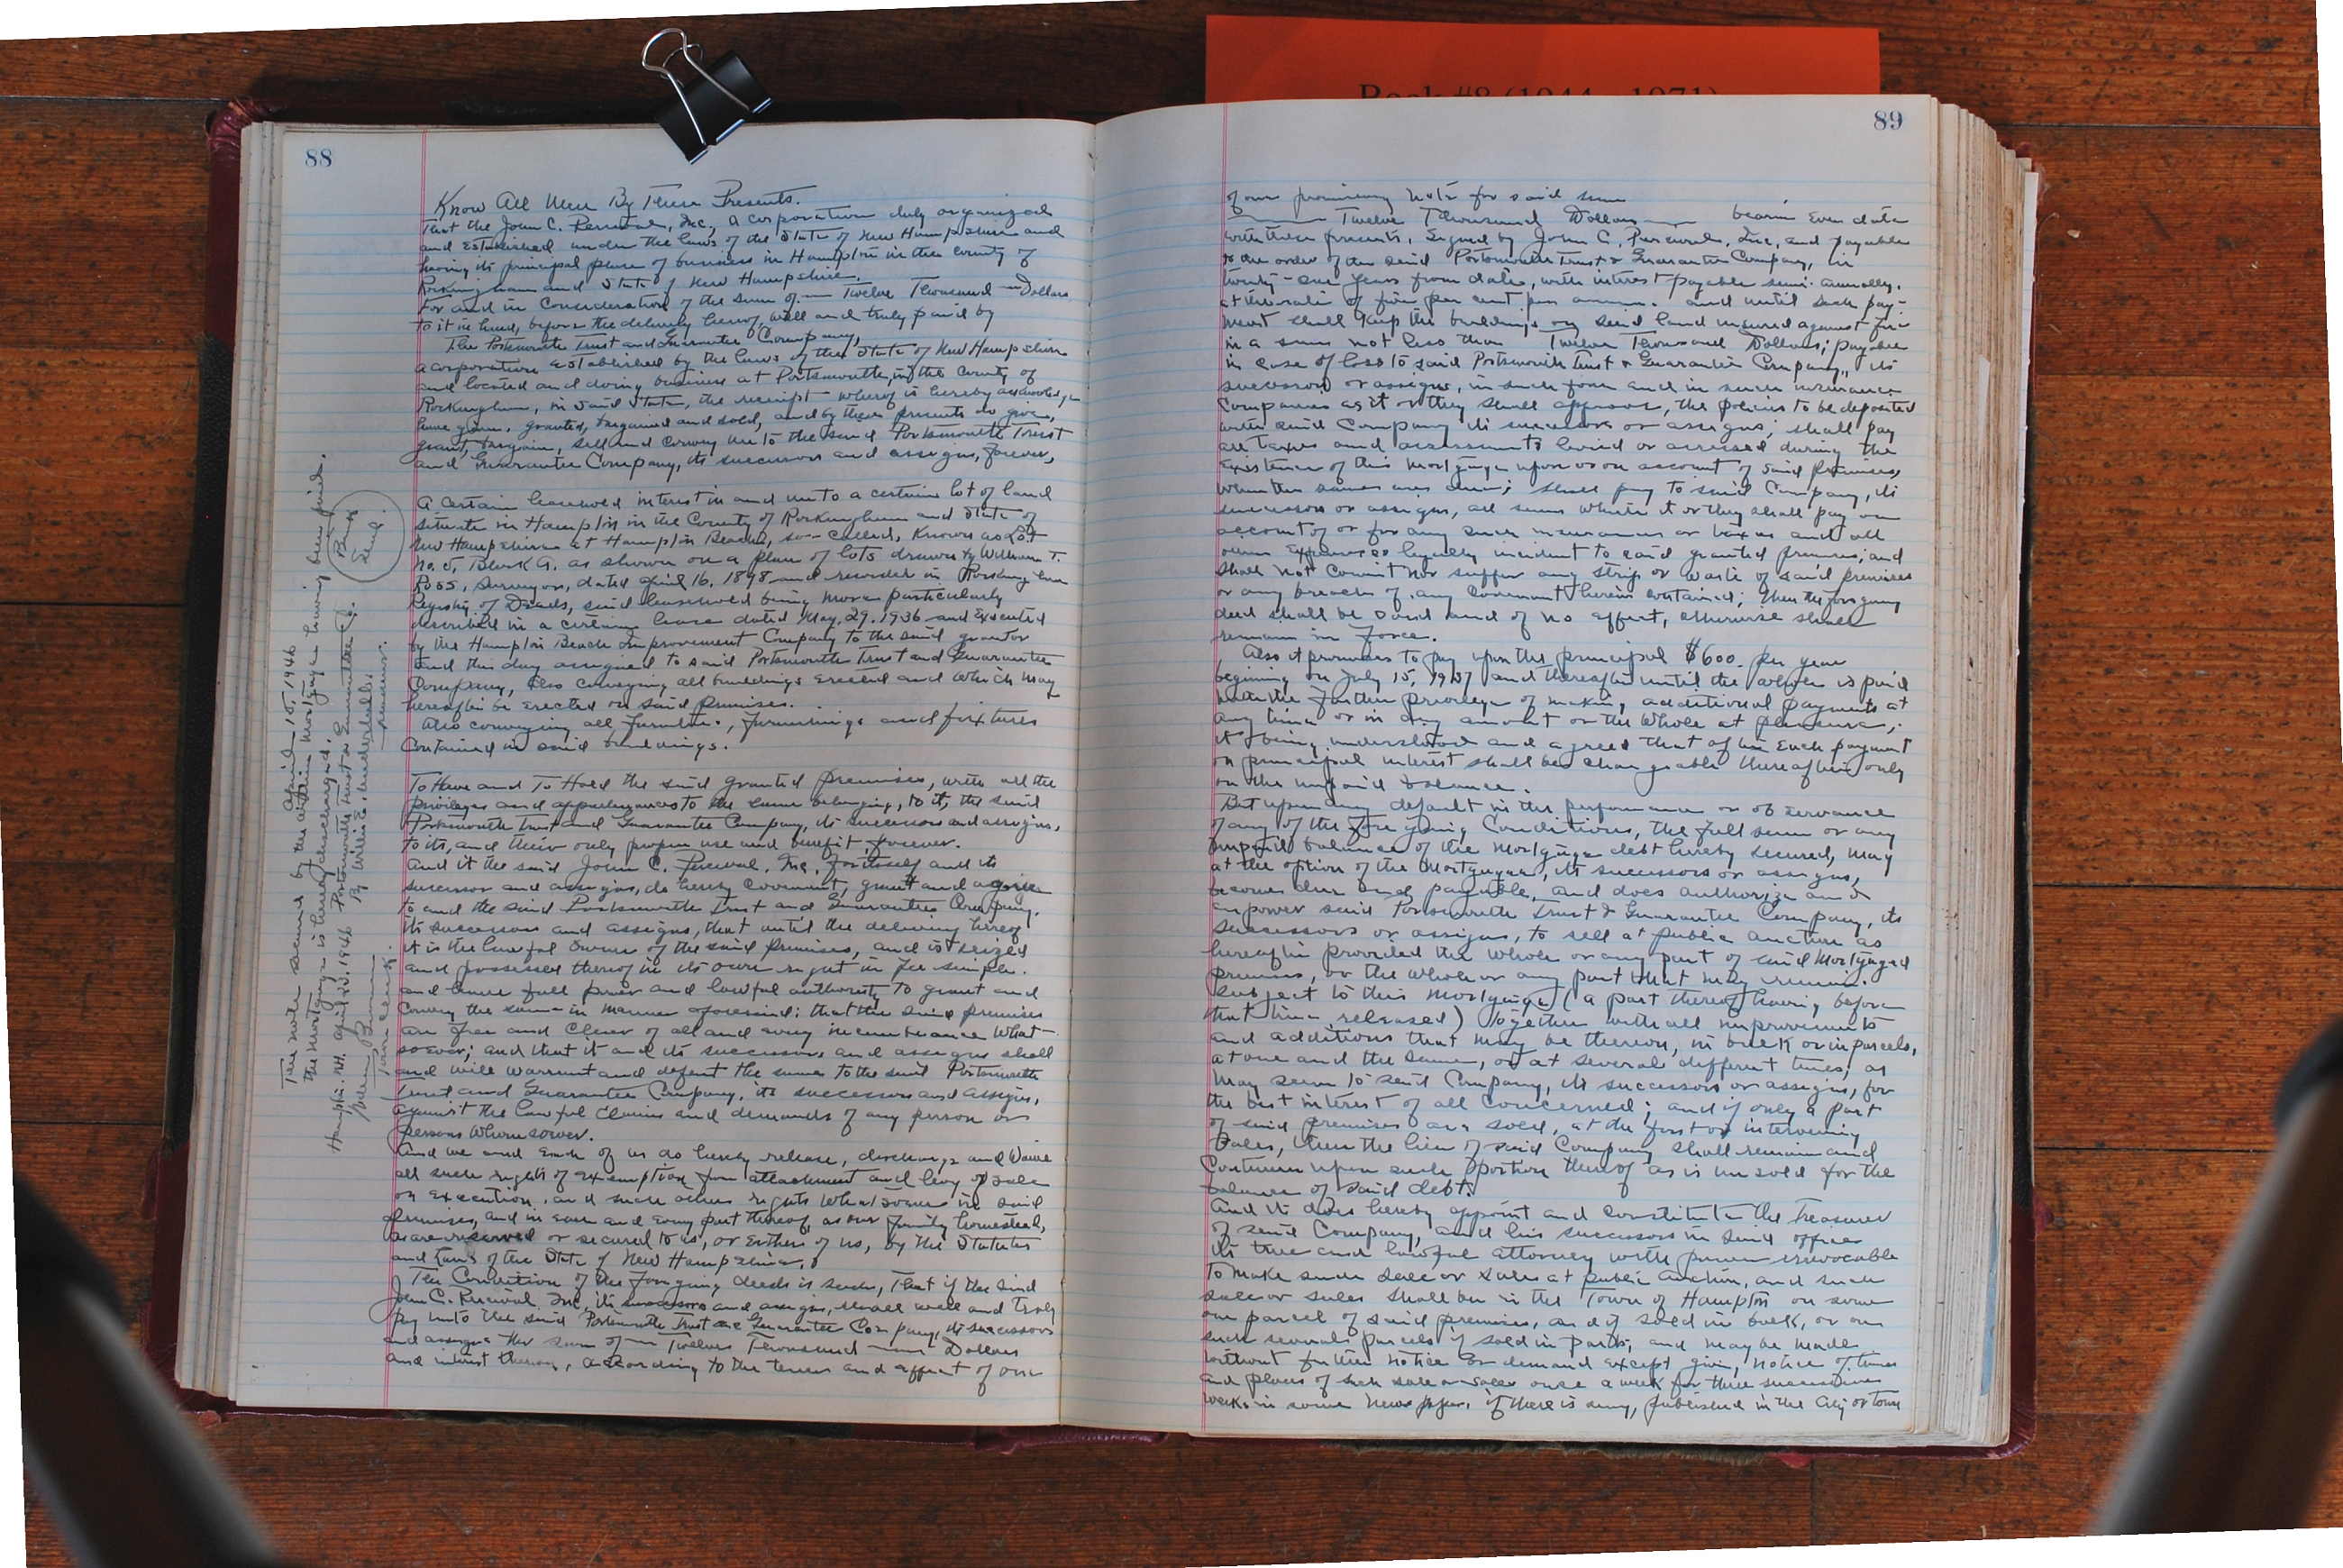 Book #8 (1944 - 1971)
88
Know All Men By These Presents.
That the John C. Percival, Inc., a corporation duly organized
and Established under the laws of the State of New Hampshire and
having its principal place of business in Hampton in the county of
Rockingham and State of New Hampshire.
For and in Consideration of the sum of — Twelve Thousand — Dollars
to it in hand, before the delivery hereof, well and truly paid by
The Portsmouth Trust and Guarantee Company,
a corporation Established by the laws of the State of New Hampshire
and located and doing business at Portsmouth, in the County of
Rockingham, in said State, the receipt whereof is hereby acknowledge
have given, granted, bargained and sold, and by these presents do give,
grant, bargain, sell and convey unto the said Portsmouth Trust
and Guarantee Company, its successors and assigns, forever,
A certain leasehold interest in and unto a certain lot of land
situate in Hampton in the County of Rockingham and State of
New Hampshire at Hampton Beach, so-called, known as Lot
No. 5, Block G. as shown on a plan of lots drawn by William T.
Ross, Surveyor, dated April 16, 1898 and recorded in Rockingham
Registry of Deeds, said leasehold being more particularly
described in a certain lease dated May 29, 1936 and Executed
by the Hampton Beach Improvement Company to the said grantor
and this day assigned to said Portsmouth Trust and Guarantee
Company, Also conveying all buildings erected and which may
hereafter be erected on said premises.
Also conveying all furniture, furnishings and fixtures
contained in said buildings.
To Have and To Hold the said granted premises, with all the
privileges and appurtenances to the same belonging, to it, the said
Portsmouth Trust and Guarantee Company, its successors and assigns,
to its, and their only proper use and benefit, forever.
And it the said John C. Percival, Inc, for itself and its
successor and assigns, do hereby covenant, grant and agree
to and the said Portsmouth Trust and Guarantee Company,
its successors and assigns, that until the delivery hereof
it is the lawful owner of the said premises, and is seized
and possessed thereof in its own right in fee simple.
and have full power and lawful authority to grant and
convey the same in manner aforesaid; that the said premises
are free and clear of all and every incumbrance what-
soever; and that it and its successors and assigns shall
and will warrant and defend the same to the said Portsmouth
Trust and Guarantee Company, its successors and assigns,
against the lawful claims and demands of any person or
persons whomsoever.
And we and each of us do hereby release, discharge and waive
all such rights of exemption from attachment and levy of sale
on execution, and such other rights whatsoever in said
premises, and in each and every part thereof, as our family homestead,
as are reserved or secured to us, or either of us, by the Statutes
and laws of the State of New Hampshire.
The Condition of the foregoing deeds is such, That if the said
John C. Percival, Inc, its successors and assigns, shall well and truly
pay unto the said Portsmouth Trust and Guarantee Company, its successors
and assigns the sum of — Twelve Thousand — Dollars
and interest thereon, according to the tenor and effect of our
April 15, 1946
The note secured by the within mortgage having been paid.
the mortgage is hereby discharged.
Hampton NH. April 20, 1946 Portsmouth Trust & Guarantee Co.
By Willis E.
Town Clerk.
89
of our promissory note for said sum
Twelve Thousand Dollars — bearing even date
with these presents, signed by John C. Percival, Inc, and payable
to the order of the said Portsmouth Trust & Guarantee Company, in
twenty-one years from date, with interest payable semi-annually,
at the rate of five per cent per annum. and until such pay-
ment shall keep the buildings on said land insured against fire
in a sum not less than Twelve Thousand Dollars; payable
in case of loss to said Portsmouth Trust & Guarantee Company, its
successors or assigns, in such form and in such insurance
Companies as it or they shall approve, the policies to be deposited
with said Company its successors or assigns; shall pay
all taxes and assessments levied or assessed during the
existence of this mortgage upon or on account of said premises,
when the same are due; shall pay to said Company, its
successors or assigns, all sums which it or they shall pay on
account of or for any such insurance or taxes and all
other expenses legally incident to said granted premises; and
shall not commit nor suffer any strip or waste of said premises
or any breach of any covenant herein contained; then the foregoing
deed shall be void and of no effect, otherwise shall
remain in force.
Also it promises to pay upon the principal $600. per year
begining on July 15, 1937 and thereafter until the whole is paid
with the further privilege of making additional payments at
any time or in any amount or the whole at pleasure,
it being understood and agreed that after each payment
on principal interest shall be chargeable thereafter only
on the unpaid balance.
But upon any default in the performance or observance
of any of the foregoing conditions, the full sum or any
unpaid balance of the mortgage debt hereby secured, may
at the option of the Mortgagee, its successors or assigns,
become due and payable, and does authorize and
empower said Portsmouth Trust & Guarantee Company, its
successors or assigns, to sell at public auction as
hereafter provided the whole or any part of said Mortgaged
premises, or the whole or any part that may remain
subject to this mortgage (a part thereof having before
that time released) together with all improvements
and additions that may be thereon, in bulk or in parcels,
at one and the same, or at several different times, as
may seem to said Company, its successors or assigns, for
the best interest of all concerned; and if only a part
of said premises are sold, at the first or intervening
sales, then the lien of said Company shall remain and
continue upon such portion thereof as is unsold for the
balance of said debt.
And it does hereby appoint and constitute the Treasurer
of said Company, and his successors in said office
its true and lawful attorney with power irrevocable
to make such sale or sales at public auction, and such
sale or sales shall be in the Town of Hampton on some
one parcel of said premises, and if sold in bulk, or on
such several parcels if sold in parts, and may be made
without further notice or demand except given, notice of time
and places of such sale or sales once a week for three successive
weeks in some newspaper, if there is any, published in the City or town